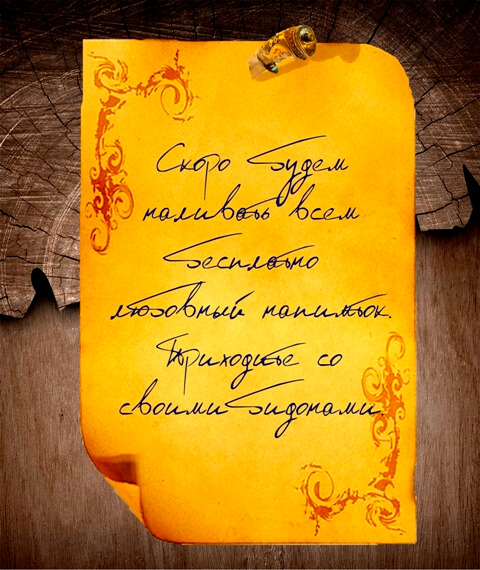 Скоро будем
наливать всем
бесплатно
любовный напиток.
Приходите со
своими бидонами.